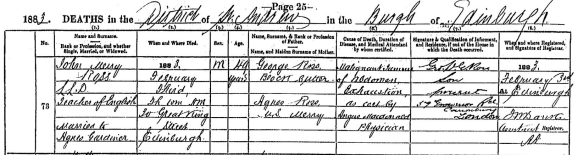 Page 25.
1883. DEATHS in the District of St. Andrew in the Burgh of Edinburgh
No. Name and Surname. Rank or Profession, and whether Single, Married, or Widowed. When and Where Died. Sex. Age. Name, Surname, & Rank or Profession of Father. Name, and Maiden Surname of Mother. Cause of Death, Duration of Disease, and Medical Attendant by whom certified. Signature & Qualification of Informant, and Residence, if out of the House in which the Death occurred. When and where Registered, and Signature of Registrar.
73
John Merry
Ross
LL.D.
Teacher of English
Married to
Agnes Gardiner
1883,
February
Third
2h AM
Great King
Street
Edinburgh.
M
years
George Ross,
Agnes Ross,
M.S. Merry
Malignant
of abdomen,
Exhaustion,
as cert by
Angus Macdonald
Physician
Son
present
London
1883,
February 3rd
at Edinburgh
Registrar.